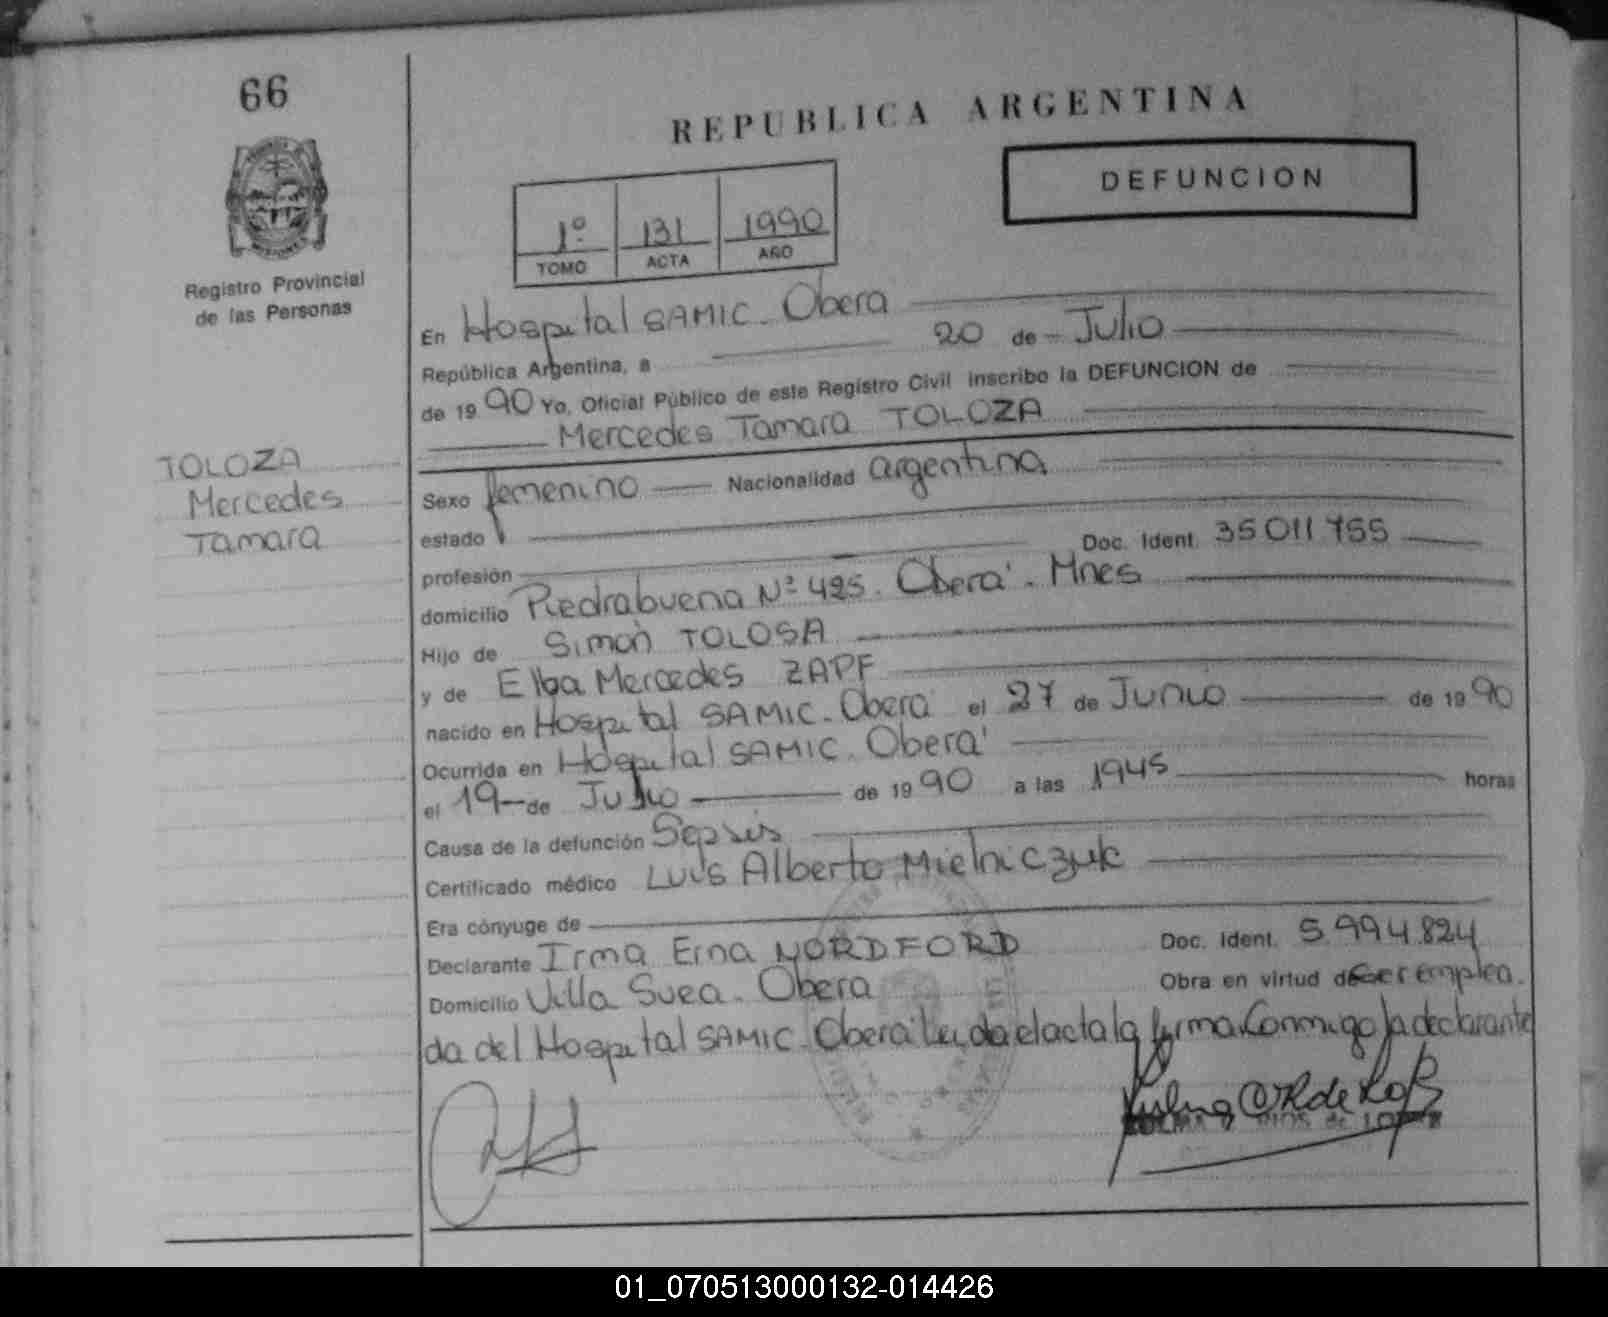 66
REPUBLICA ARGENTINA
DEFUNCION
1º 131 1990
TOMO ACTA AÑO
Registro Provincial
de las Personas
En Hospital SAMIC - Obera
República Argentina, a 20 de Julio
de 1990 Yo, Oficial Público de este Registro Civil inscribo la DEFUNCION de
Mercedes Tamara TOLOZA
TOLOZA
Mercedes
Tamara
Sexo femenino Nacionalidad argentina
estado
profesión Doc. Ident. 35 011 755
domicilio Piedrabuena Nº 425. Oberá. Mnes
Hijo de Simón TOLOSA
y de Elba Mercedes ZAPF
nacido en Hospital SAMIC - Oberá el 27 de Junio de 1990
Ocurrida en Hospital SAMIC. Oberá
el 19 de Julio de 1990 a las 1945 horas
Causa de la defunción Sepsis
Certificado médico Luis Alberto Mielniczuk
Era cónyuge de
Declarante Irma Erna NORDFORD Doc. Ident. 5.994.824
Domicilio Villa Svea. Obera Obra en virtud de ser emplea-
da del Hospital SAMIC Oberá Leida el acta la firma Conmigo la declarante
01_070513000132-014426